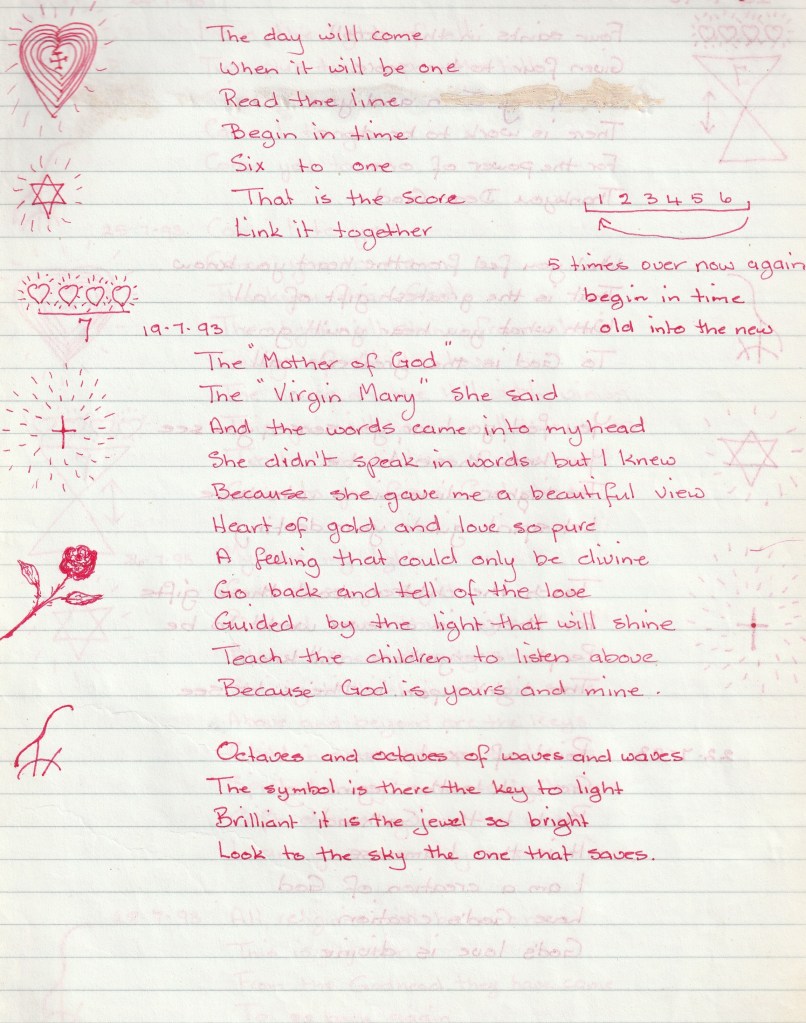 The day will come
When it will be one
Read the line
Begin in time
Six to one
That is the score
1 2 3 4 5 6
Link it together
5 times over now again
begin in time
old into the new
7
19.7.93
The "Mother of God"
The "Virgin Mary" she said
And the words came into my head
She didn't speak in words but I knew
Because she gave me a beautiful view
Heart of gold and love so pure
A feeling that could only be divine
Go back and tell of the love
Guided by the light that will shine
Teach the children to listen above
Because God is yours and mine.
Octaves and octaves of waves and waves
The symbol is there the key to light
Brilliant it is the jewel so bright
Look to the sky the one that saves.